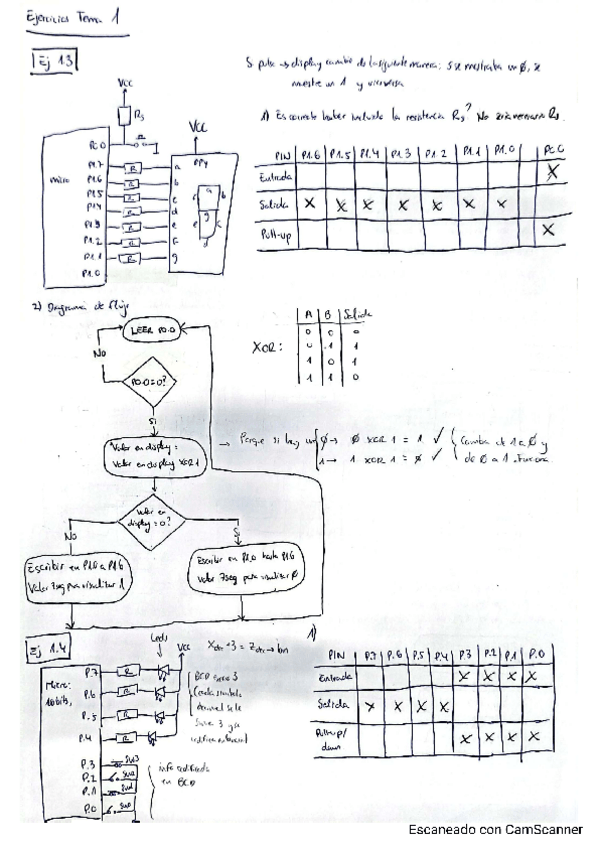 Ejercicios Tema 1
Ej 13
Se pulse → display cambia de la siguiente manera: si se mostraba un 0, se
muestre un 1 y viceversa
Vcc
R9
P0.0
Vcc
micro
P1.7
P1.6
P1.5
P1.4
P1.3
P1.2
P1.1
P1.0
R
R
R
R
R
R
R
a
b
c
d
e
f
g
1) Es correcto haber incluido la resistencia R9? No
PIN P1.6 P1.5 P1.4 P1.3 P1.2 P1.1 P1.0 P0.0
Entrada X
Salida X X X X X X X
Pull-up X
2) Diagrama de flujo
LEER P0.0
No
P0.0=0?
Si
Valor en display =
Valor en display XOR 1
XOR:
A B Salida
0 0 0
0 1 1
1 0 1
1 1 0
→ Porque si hay un 0 → 0 XOR 1 = 1 ✓ Cambia de 1 a 0 y
1 → 1 XOR 1 = 0 ✓ de 0 a 1. Funciona
Valor en
display=0?
No
Si
Escribir en P1.0 a P1.6
Valor 7seg para visualizar 1
Escribir en P1.0 hasta P1.6
Valor 7seg para visualizar 0
Ej 1.4
Leds
Vcc
Micro:
P.7
P.6
P.5
P.4
P.3
P.2
P.1
P.0
R
R
R
R
SW3
SW2
SW1
SW0
BCD exceso 3
Cada símbolo
decimal se le
suma 3 y se
info codificada
en BCD
1)
PIN P.7 P.6 P.5 P.4 P.3 P.2 P.1 P.0
Entrada X X X X
Salida X X X X
Pull-up/
down X X X X
Escaneado con CamScanner